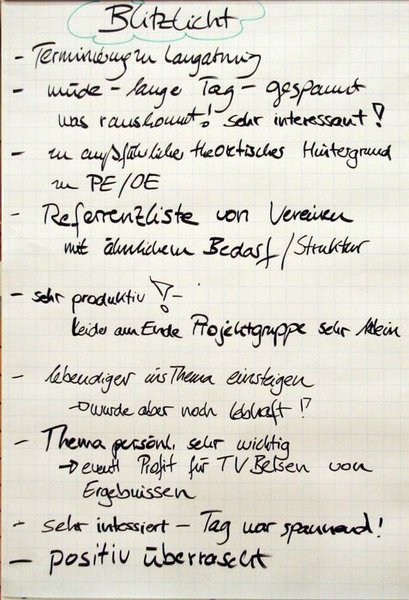 Blitzlicht
- Terminierung zu langatmig
- müde - lange Tag - gespannt
was rauskommt! sehr interessant!
- zu ausführlicher theoretischer Hintergrund
zu PE/OE
- Referrenzliste von Vereinen
mit ähnlichem Bedarf/Struktur
- sehr produktiv! -
leider am Ende Projektgruppe sehr klein
- lebendiger ins Thema einsteigen
→ wurde aber noch lebhaft!?
- Thema persönl. sehr wichtig
→ eventl Profit für TV Betsen von
Ergebnissen
- sehr intessiert - Tag war spannend!
- positiv überrascht